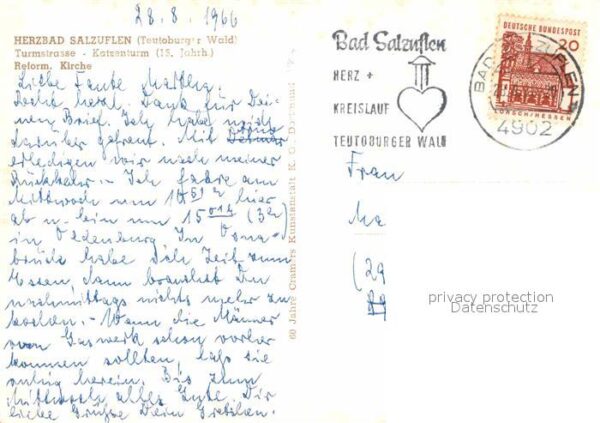 28.8.1966
HERZBAD SALZUFLEN (Teutoburger Wald)
Turmstrasse - Katzenturm (15. Jahrh.)
Reform. Kirche
Liebe Tante
Recht herzl. Dank für Dei-
nen Brief. Ich habe mich
darüber gefreut. Mit
erledigen wir nach meiner
Rückkehr. - Ich fahre am
Mittwoch um 10 51 hier
ab u. bin um 15 014
in Oldenburg. In Osna-
brück habe ich Zeit zum
Essen, dann brauchst Du
nachmittags nichts mehr zu
kochen. - Wenn die Männer
vom Gaswerk schon vorher
kommen sollten, laß sie
ruhig herein. Bis zum
Mittwoch alles Gute. Dir
liebe Grüße Dein Gretchen.
60 Jahre Cramers Kunstanstalt K. G., Dortmund
Bad Salzuflen
HERZ +
KREISLAUF
TEUTOBURGER WALD
DEUTSCHE BUNDESPOST
20
LORSCH/HESSEN
BAD SALZUFLEN
4902
Frau
Ma
(29
privacy protection
Datenschutz